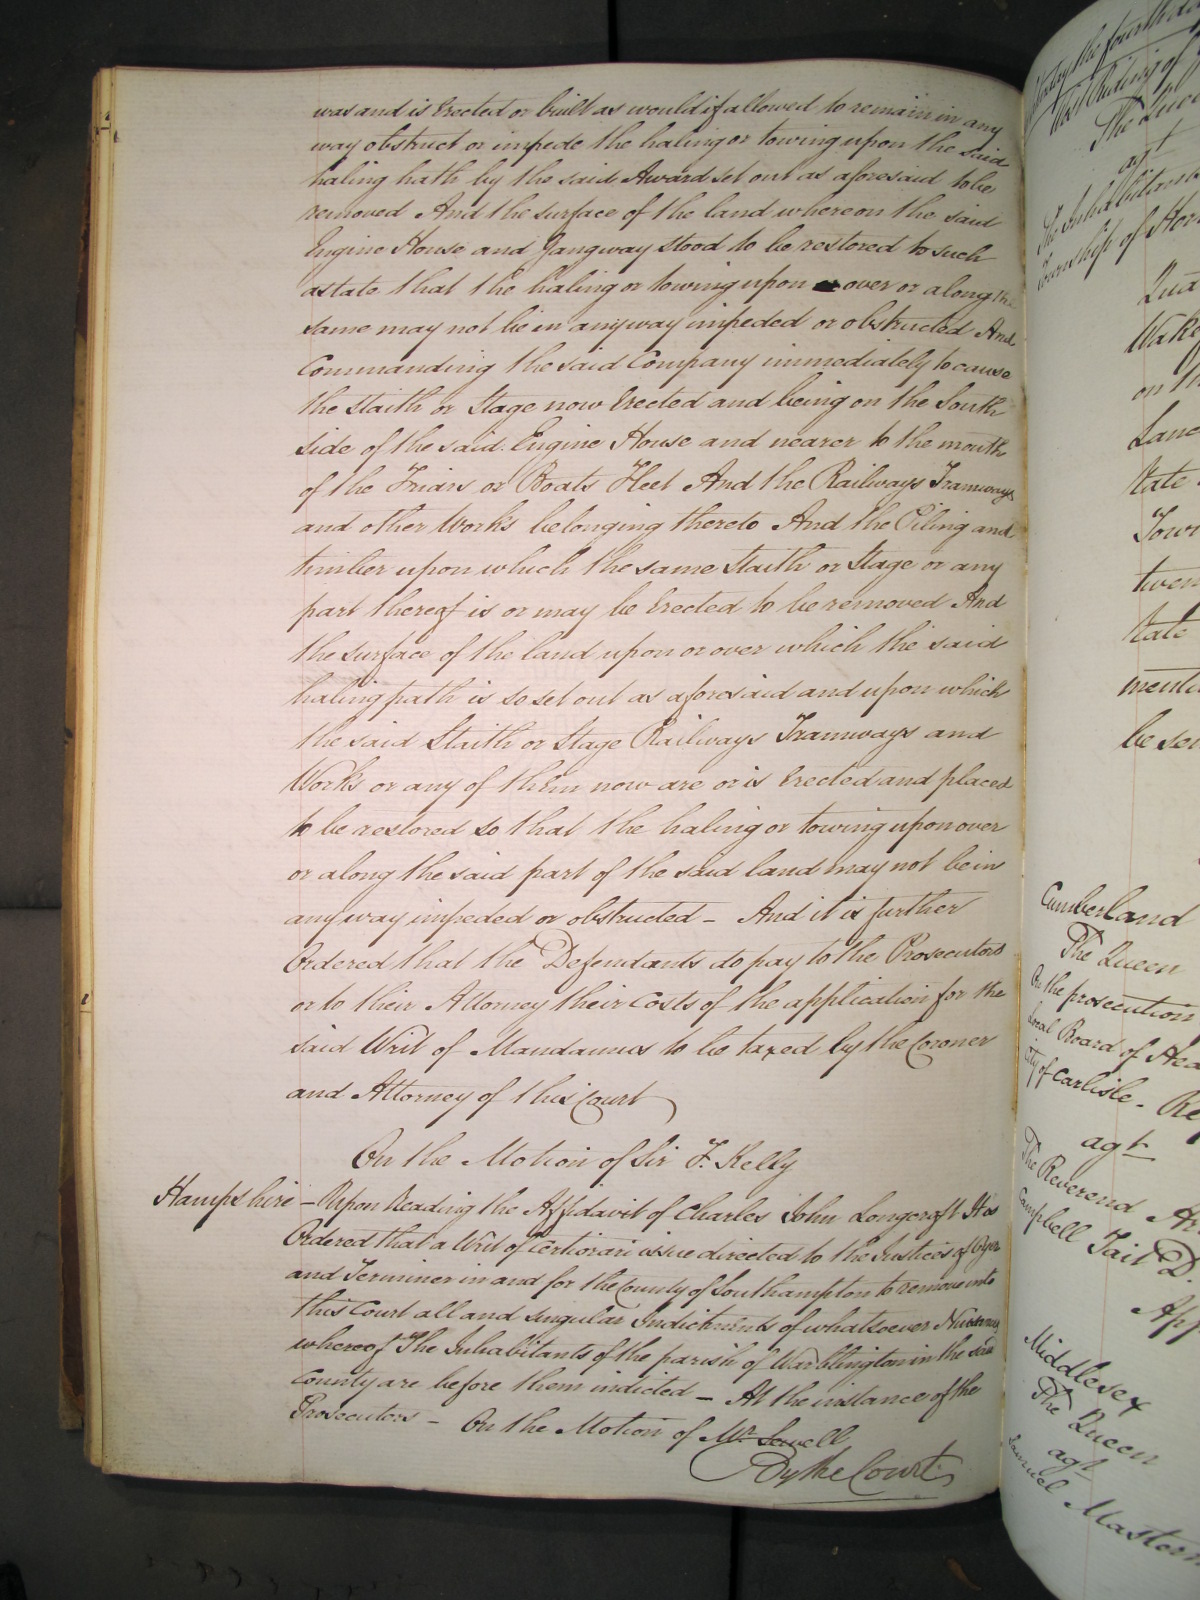 was and is Erected or built as would if allowed to remain in any
way obstruct or impede the haling or towing upon the said
haling hath by the said Award set out as aforesaid to be
removed And the surface of the land whereon the said
Engine House and Gangway stood to be restored to such
a state that the haling or towing upon over or along the
same may not be in anyway impeded or obstructed And
Commanding the said Company immediately to cause
the Staith or Stage now Erected and being on the South
side of the said Engine House and nearer to the mouth
of the Friars or Boats Fleet And the Railways Tramways
and other Works belonging thereto And the Piling and
timber upon which the same Staith or Stage or any
part thereof is or may be Erected to be removed And
the surface of the land upon or over which the said
haling path is so set out as aforesaid and upon which
the said Staith or Stage Railways Tramways and
Works or any of them now are or is Erected and placed
to be restored so that the haling or towing upon over
or along the said part of the said land may not be in
any way impeded or obstructed – And it is further
Ordered that the Defendants do pay to the Prosecutors
or to their Attorney their Costs of the application for the
said Writ of Mandamus to be taxed by the Coroner
and Attorney of this Court
On the Motion of Sir F. Kelly
Hampshire – Upon Reading the Affidavit of Charles John Longcroft It is
Ordered that a Writ of Certiorari issue directed to the Justices of Oyer
and Terminer in and for the County of Southampton to remove into
this Court all and singular Indictments of whatsoever Nuisances
whereof The Inhabitants of the parish of Warblington in the said
County are before them indicted – At the instance of the
Prosecutors – On the Motion of Mr. Sewell
By the Court
the fourth
West Riding of
The Queen
agt
The Inhabitants
Township of
on the
Tate
Tate
be
Cumberland
The Queen
On the prosecution
Local Board of
City of Carlisle –
agt
The Reverend
Campbell Tait D.
Middlesex
The Queen
agt
Samuel